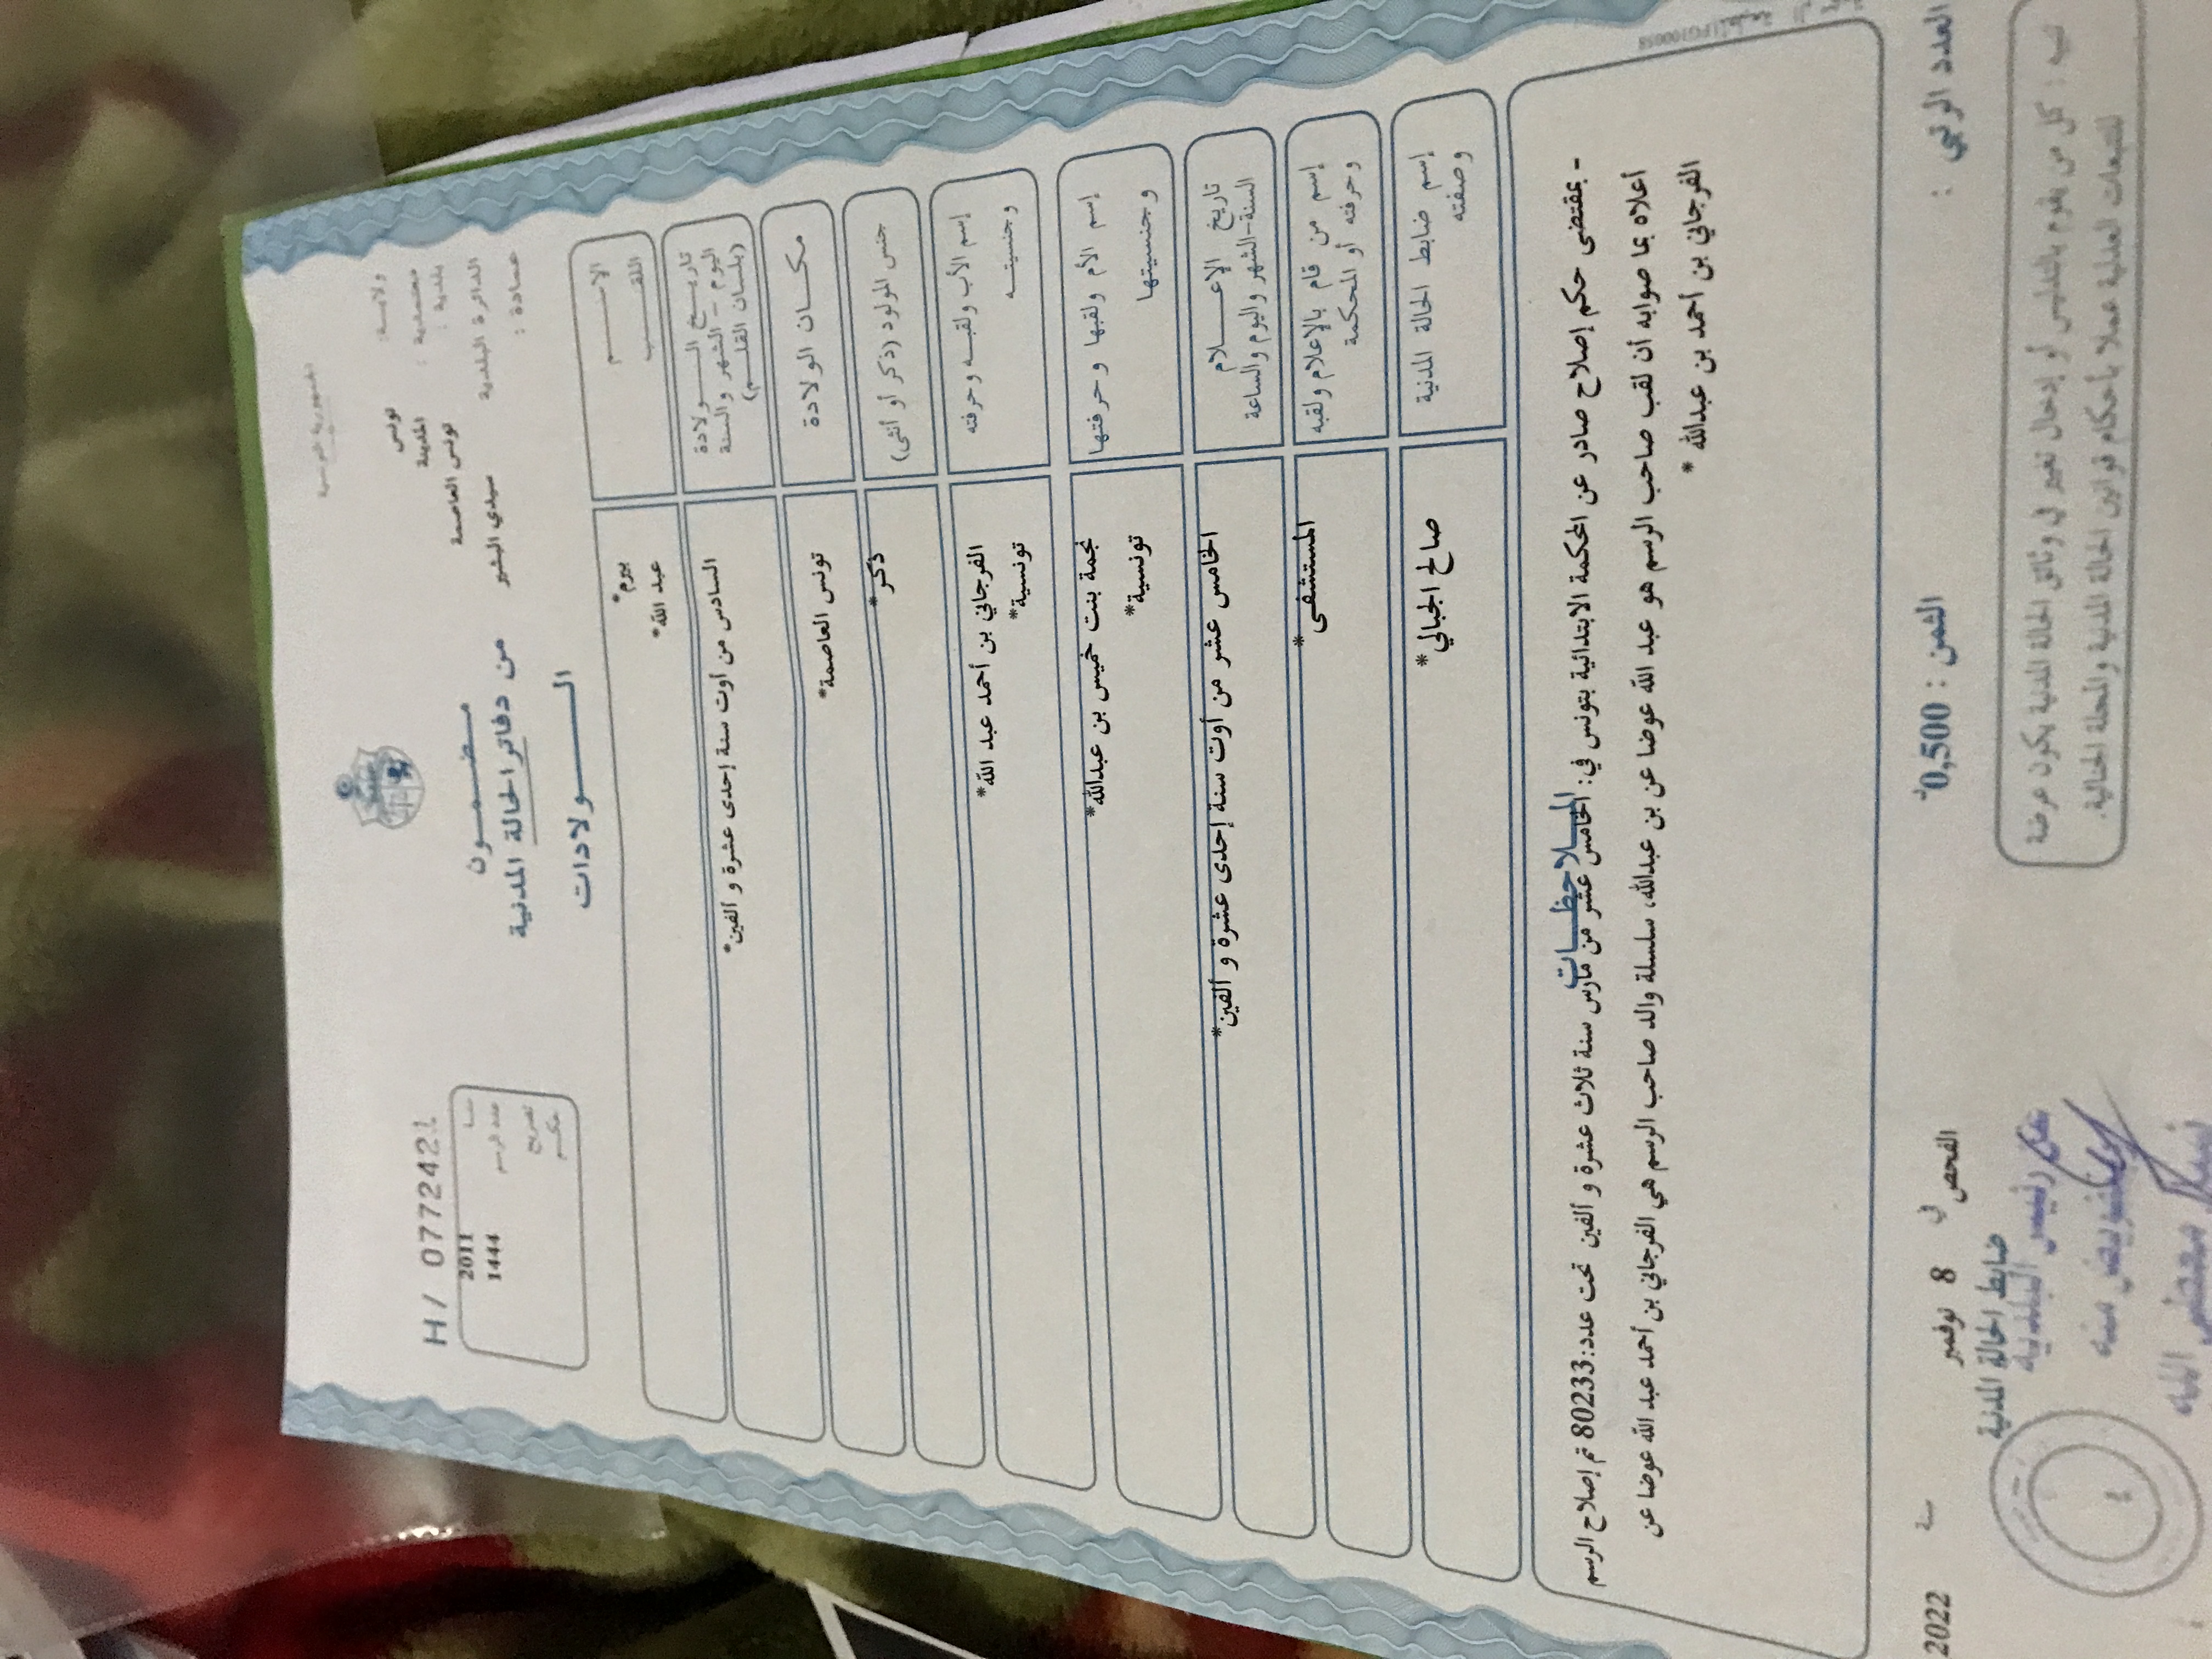 الجمهورية التونسية
H/ 0772421
ولاية: تونس
معتمدية : المدينة
بلدية : تونس العاصمة
الدائرة البلدية سيدي البشير
عمادة :
مضمون
من دفاتر الحالة المدنية
الولادات
سنة 2011
عدد الرسم 1444
تصريح
حكم
الاسم بيرم*
اللقب عبد الله*
تاريخ الولادة
اليوم - الشهر والسنة
(بلسان القلم)
السادس من أوت سنة إحدى عشرة و ألفين*
مكان الولادة تونس العاصمة*
جنس المولود (ذكر أو أنثى) ذكر*
إسم الأب ولقبه وحرفته الفرجاني بن أحمد عبد الله*
وجنسيته تونسية*
إسم الأم ولقبها وحرفتها نجمة بنت خميس بن عبدالله*
وجنسيتها تونسية*
تاريخ الإعلام
السنة-الشهر واليوم والساعة
الخامس عشر من أوت سنة إحدى عشرة و ألفين*
إسم من قام بالإعلام ولقبه
وحرفته أو المحكمة
المستشفى*
إسم ضابط الحالة المدنية
وصفته
صالح الجبالي*
الملاحظات
- بمقتضى حكم إصلاح صادر عن المحكمة الابتدائية بتونس في: الخامس عشر من مارس سنة ثلاث عشرة و ألفين تحت عدد:80233 تم إصلاح الرسم
أعلاه بما صوابه أن لقب صاحب الرسم هو عبد الله عوضا عن بن عبدالله، سلسلة والد صاحب الرسم هي الفرجاني بن أحمد عبد الله عوضا عن
الفرجاني بن أحمد بن عبدالله*
العدد الرتبي :
الثمن : 0,500د
الفحص في 8 نوفمبر سنة 2022
ضابط الحالة المدنية
عن رئيس البلدية
وبتفويض منه
تنبيه : كل من يقوم بالتدليس أو إدخال تغيير في وثائق الحالة المدنية يكون عرضة
للتبعات العدلية عملا بأحكام قوانين الحالة المدنية والمجلة الجنائية.